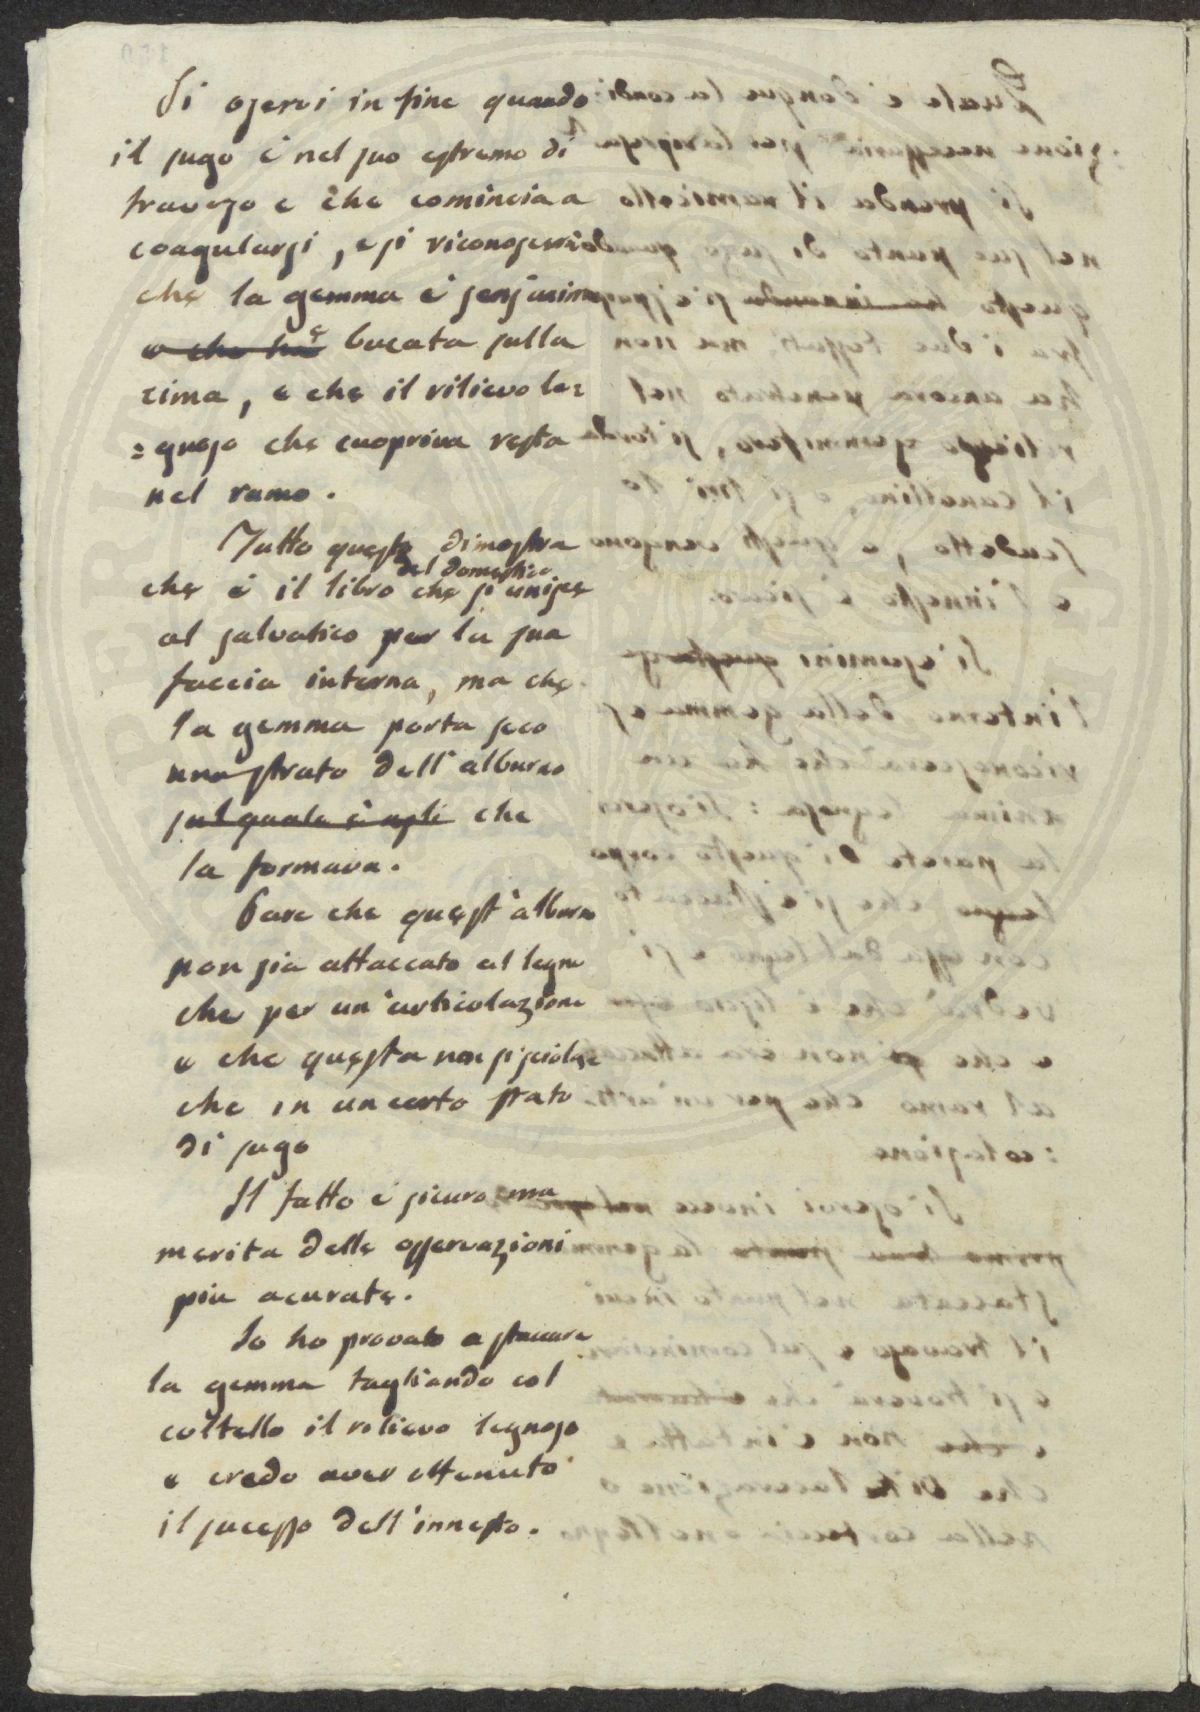 Si osservi in fine quando
il sugo è nel suo estremo di
travaso e che comincia a
coagularsi, e si riconoscerà
che la gemma è senz'anima
e che ha è bucata sulla
cima, e che il rilievo le=
=gnoso che cuopriva resta
nel ramo.
Tutto questo dimostra
del domestico
che è il libro che si unisce
al salvatico per la sua
faccia interna, ma che
la gemma porta seco
uno strato dell'alburno
sul quale è apli che
la formava.
Pare che quest'alburno
non sia attaccato al legno
che per un'articolazione
e che questa non si sciolge
che in un certo stato
di sugo
Il fatto è sicuro ma
merita delle osservazioni
piu acurate.
Io ho provato a staccare
la gemma tagliando col
coltello il rilievo legnoso
e credo aver ottenuto
il sucesso dell'innesto.